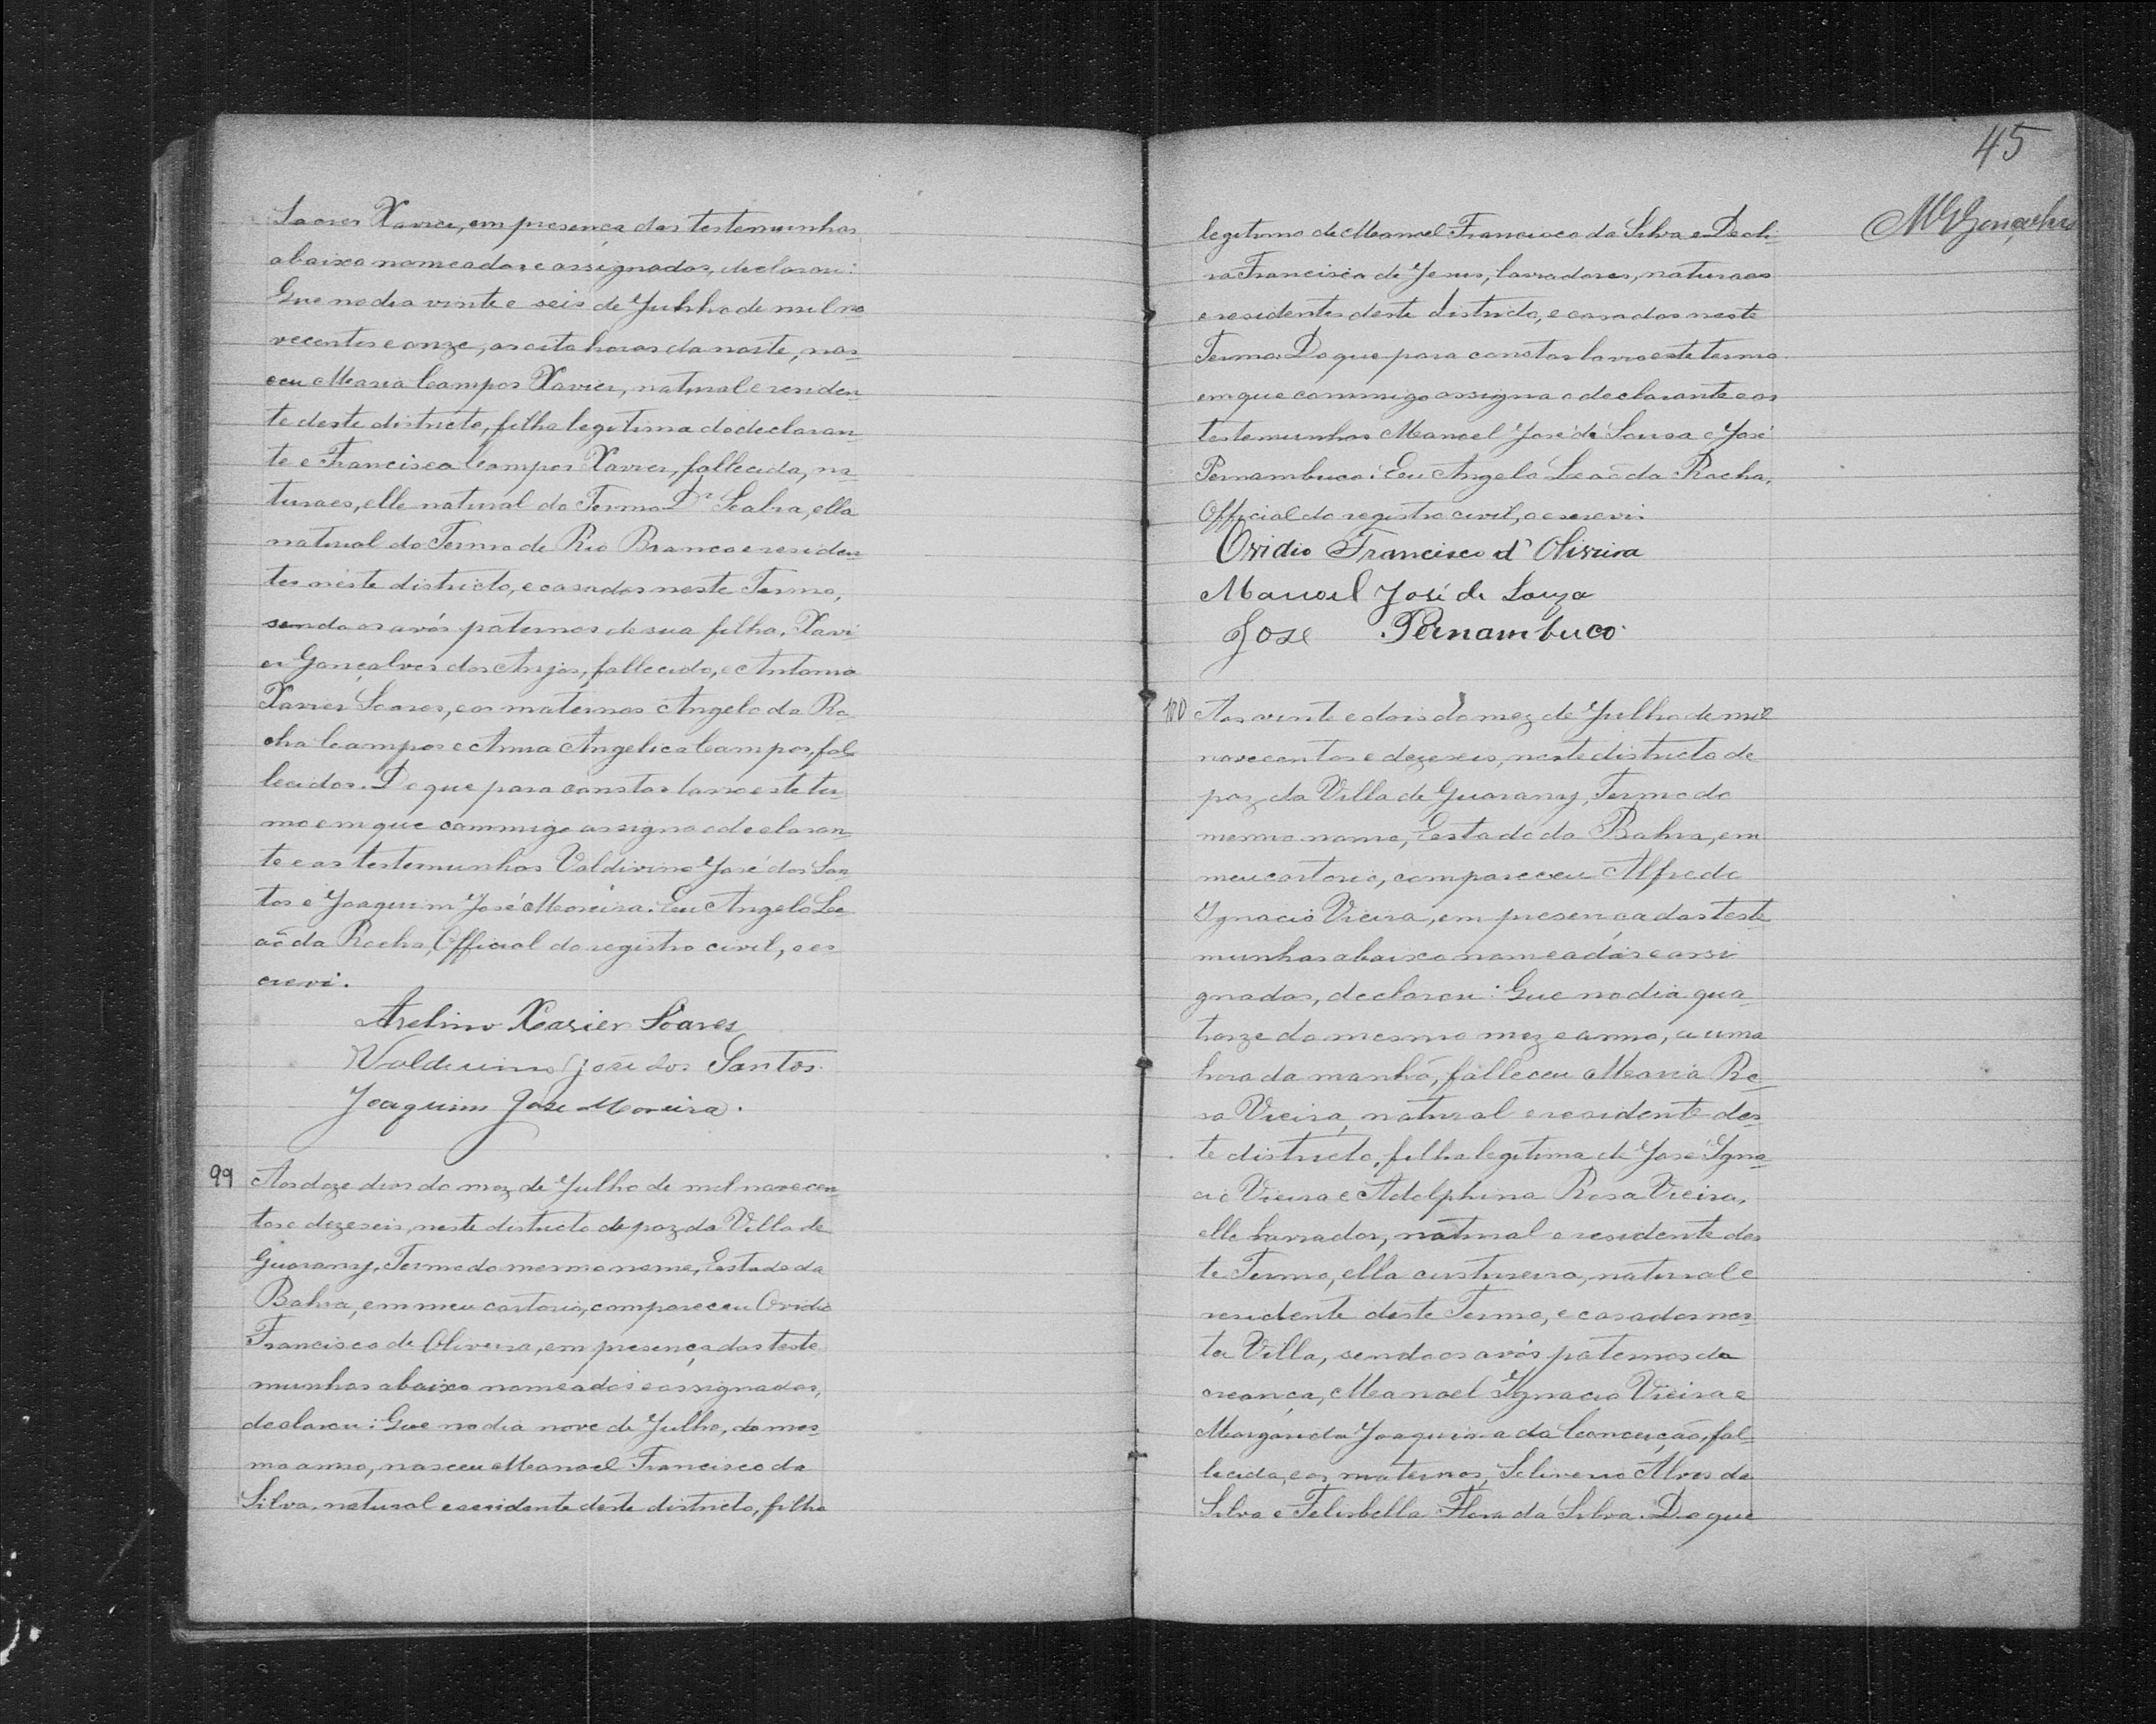 Soares Xavier, em presença das testemunhas
abaixo nomeadas e assignadas, declarou:
Que no dia vinte e seis de Junho de mil no
vecentos e onze, as oito horas da noite, nas-
ceu Maria Campos Xavier, natural e residen-
te deste districto, filha legitima do declaran-
te e Francisca Campos Xavier, fallecida, na-
turaes, elle natural do Termo Dr Seabra, ella
natural do Termo de Rio Branco e residen-
tes néste districto, e casados neste Termo,
sendo os avós paternos de sua filha, Xavi
er Gonçalves dos Anjos, fallecido, e Antonia
Xavier Soares, e os maternos Angelo da Ro
cha Campos e Anna Angelica Campos, fal-
lecidos. Do que para constar lavro este ter-
mo em que commigo assigna o declaran-
te e as testemunhas Valdivino José dos San-
tos e Joaquim José Moreira. Eu Angelo Le
aõ da Rocha, Official do registro civil, o es-
crevi.
Avelino Xavier Soares
Valdivino José dos Santos
Joaquim Jose Moreira.
99 Aos doze dias do mez de Julho de mil novecen-
tos e dezeseis, neste districto de paz da Villa de
Guarany, Termo do mesmo nome, Estado da
Bahia, em meu cartorio, compareceu Ovidio
Francisco de Oliveira, em presença das teste
munhas abaixo nomeadas e assignadas,
declarou: Que no dia nove de Julho, do mes-
mo anno, nasceu Manoel Francisco da
Silva, natural e residente deste districto, filho
45
MGGonçalves
legitimo de Manoel Francisco da Silva e
ra Francisca de Jesus, lavradores, naturaes
e residentes deste districto, e casados neste
Termo. Do que para constar lavro este termo
em que commigo assigna o declarante e as
testemunhas Manoel José de Sousa e José
Pernambuco. Eu Angelo Leaõ da Rocha,
Official do registro civil, o escrevi.
Ovidio Francisco d'Oliveira
Manoel José de Souza
Jose Pernambuco
100 Aos vinte e dois do mez de Julho de mil
novecentos e dezeseis, neste districto de
paz da Villa de Guarany, Termo do
mesmo nome, Estado da Bahia, em
meu cartorio, compareceu Alfredo
Ignacio Vieira, em presença das teste
munhas abaixo nomeadas e assi
gnadas, declarou: Que no dia qua-
torze do mesmo mez e anno, a uma
hora da manhã, falleceu Maria Ro-
sa Vieira, natural e residente des-
te districto, filha legitima de José Igna-
cio Vieira e Adolphina Rosa Vieira,
elle lavrador, natural e residente des
te Termo, ella custureira, natural e
residente deste Termo, e casados nes-
ta Villa, sendo os avós paternos da
creança, Manoel Ignacio Vieira e
Margarida Joaquina da Conceição, fal-
lecida, e os maternos, Seliverio Alves da
Silva e Felisbella Flora da Silva. Do que